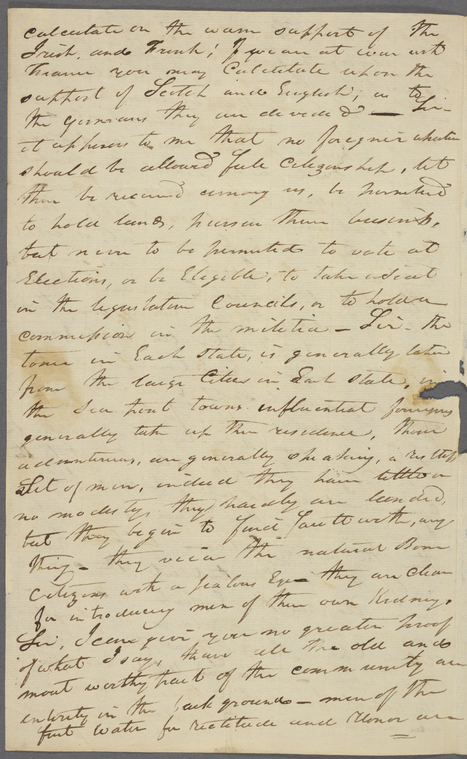 calculate on the warm support of the
Irish and French; If we are at war with
France you may Calculate upon the
support of Scotch and English; as to
the Germans they are divided — Sir —
it appears to me that no foreigner whatever
should be allowed full Citizenship, let
them be received among us, be permitted
to hold lands, pursue their business,
but never to be permitted to vote at
Elections, or be Eligible, to take a Seat
in the legislative Councils, or to hold a
commission in the militia — Sir — the
tone in Each State, is generally taken
from the large Cities in Each State, in
the Sea port towns influential foreigners
generally take up their residence, These
adventurers, are generally speaking, a restless
Set of men, indeed they have little or
no modesty, they hardly are landed,
but they begin to find fault with, every
thing — they view the natural Born
Citizens with a Jealous Eye — they are clear
for introducing men of their own Kidney.
Sir, I can give you no greater proof
of what I say, than all the old and
most worthy part of the community are
entirely in the back ground — men of the
first water for rectitude and Honor are